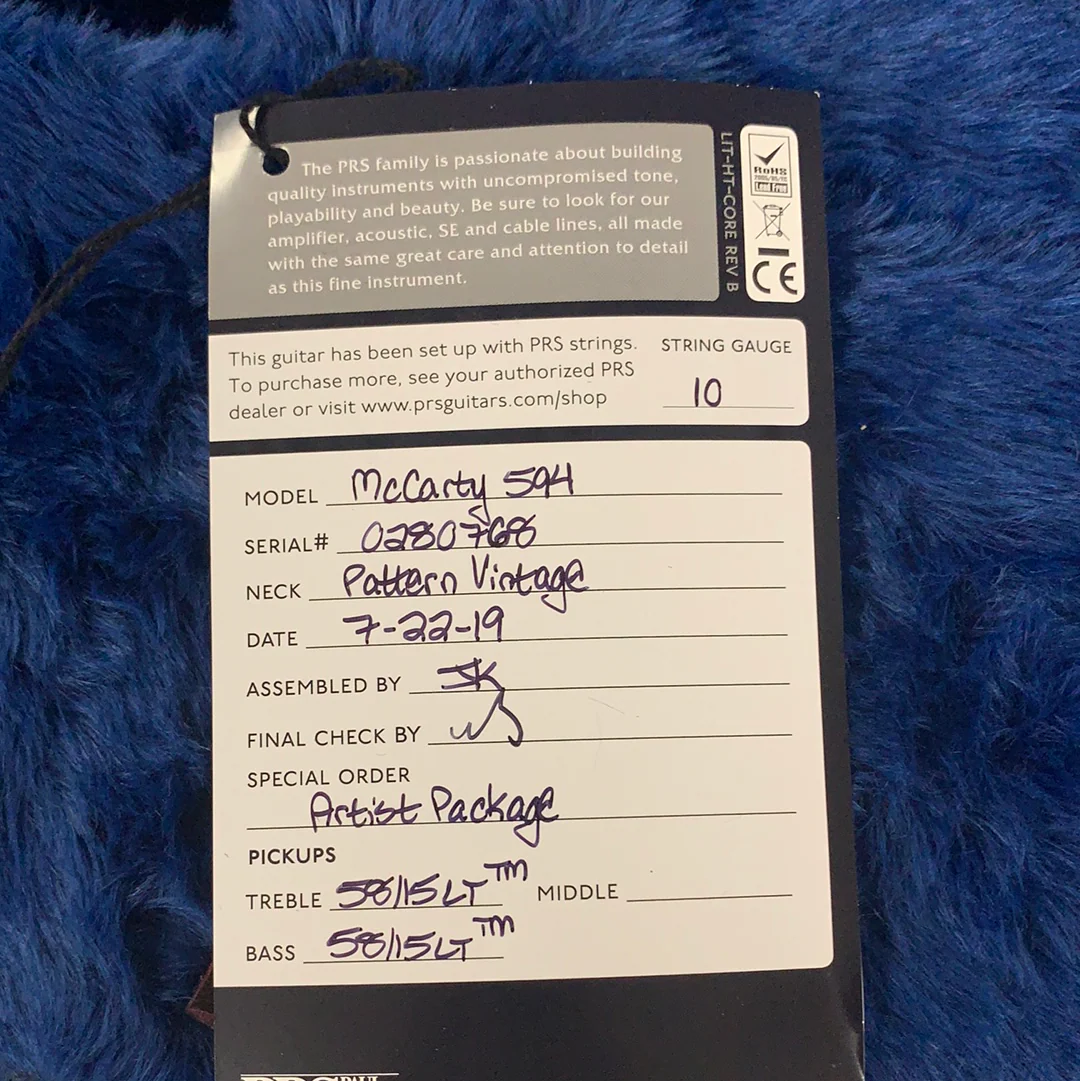 The PRS family is passionate about building
quality instruments with uncompromised tone,
playability and beauty. Be sure to look for our
amplifier, acoustic, SE and cable lines, all made
with the same great care and attention to detail
as this fine instrument.
LIT-HT-CORE REV B
RoHS
Lead Free
CE
This guitar has been set up with PRS strings.
To purchase more, see your authorized PRS
dealer or visit www.prsguitars.com/shop
STRING GAUGE
10
MODEL McCarty 594
SERIAL# 0280768
NECK Pattern Vintage
DATE 7-22-19
ASSEMBLED BY JK
FINAL CHECK BY
SPECIAL ORDER
Artist Package
PICKUPS
TREBLE 58/15LT™ MIDDLE
BASS 58/15LT™
PRS PAUL